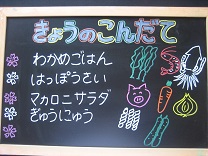 きょうのこんだて
わかめごはん
はっぽうさい
マカロニサラダ
ぎゅうにゅう